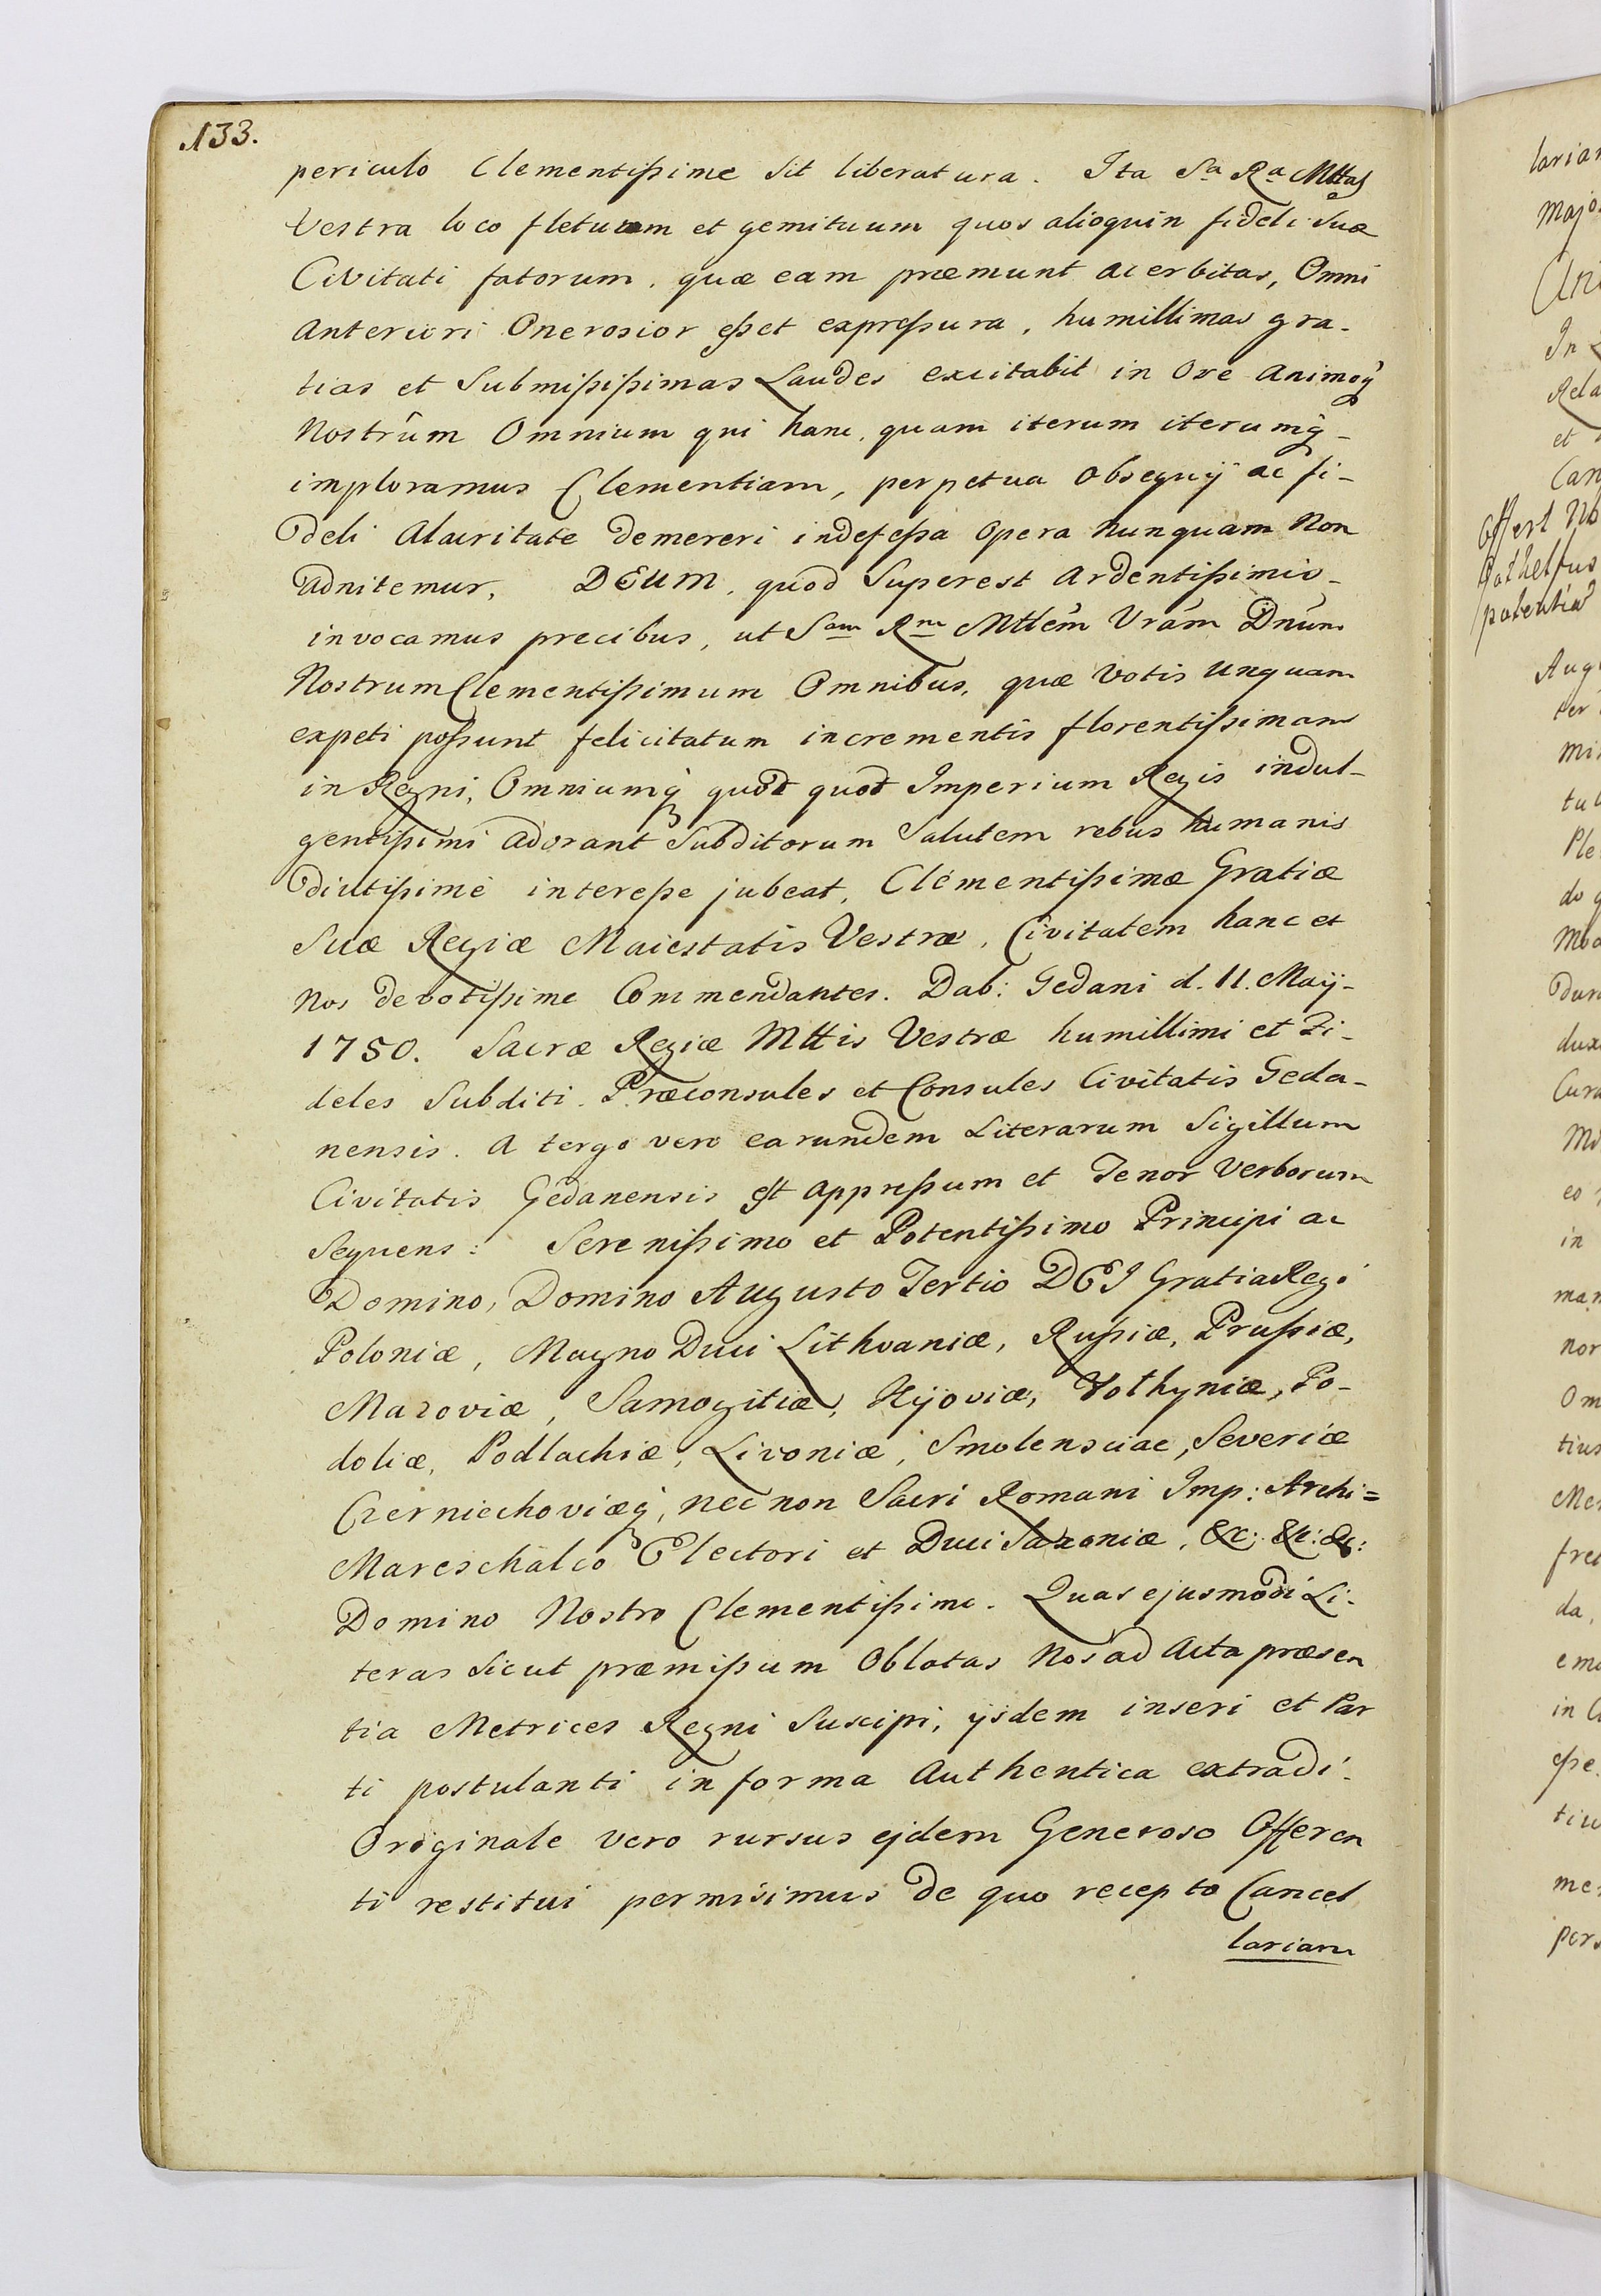 133.
periculo Clementißime Sit liberatura. Ita Sa Ra Mttas
Vestra loco fletuum et gemituum quos alioquin fideli Suæ
Civitati fatorum, quæ eam præmunt acerbitas, Omni
anteriori Onerosior eßet expreßura, humillimas gra-
tias et Submißißimas Laudes excitabit in Ore animoq̃
Nostrûm Omnium qui hanc, quam iterum iterumq̃-
imploramus Clementiam, perpetua obsequij ac fi-
deli alacritate demereri indefeßa opera nunquam Non
adnitemur, DEUM, quod Superest ardentißimis-
invocamus precibus, ut Sam Rm Mttem̃ Vram̃ Dnum̃
Nostrum Clementißimum Omnibus, quæ votis unquam
expeti poßunt felicitatum incrementis florentißimam
in Regni, Omniumq̃ quot quot Imperium Regis indul-
gentißimi adorant Subditorum Salutem rebus humanis
diutißimè intereße jubeat, Clementißimæ Gratiæ
Suæ Regiæ Maiestatis Vestræ, Civitatem hanc et
Nos devotißime Commendantes. Dab: Gedani d. 11. Maij-
1750. Sacræ Regiæ Mttis Vestræ humillimi et Fi-
deles Subditi. Præconsules et Consules Civitatis Geda-
nensis. A tergo vero earundem Literarum Sigillum
Civitatis Gedanensis est appreßum et Tenor Verborum
Sequens: Serenißimo et Potentißimo Principi ac
Domino, Domino Augusto Tertio DEI Gratia Regi
Poloniæ, Magno Duci Lithvaniæ, Rußiæ, Prußiæ,
Mazoviæ, Samogitiæ, Kijoviæ, Volhyniæ, Po-
doliæ, Podlachiæ, Livoniæ, Smolensciae, Severiæ
Czerniechoviæq̃, nec non Sacri Romani Imp: Archi=
Mareschalco Electori et Duci Saxoniæ, &c: &c: &c:
Domino Nostro Clementißimo. Quas ejusmodi Li-
teras Sicut præmißum Oblatas Nos ad Acta præsen
tia Metrices Regni Suscipi, ijsdem inseri et Par
ti postulanti in forma Authentica extradi-
Originale vero rursus ejdem Generoso Offeren
ti restitui permisimus de quo recepto Cancel
lariam